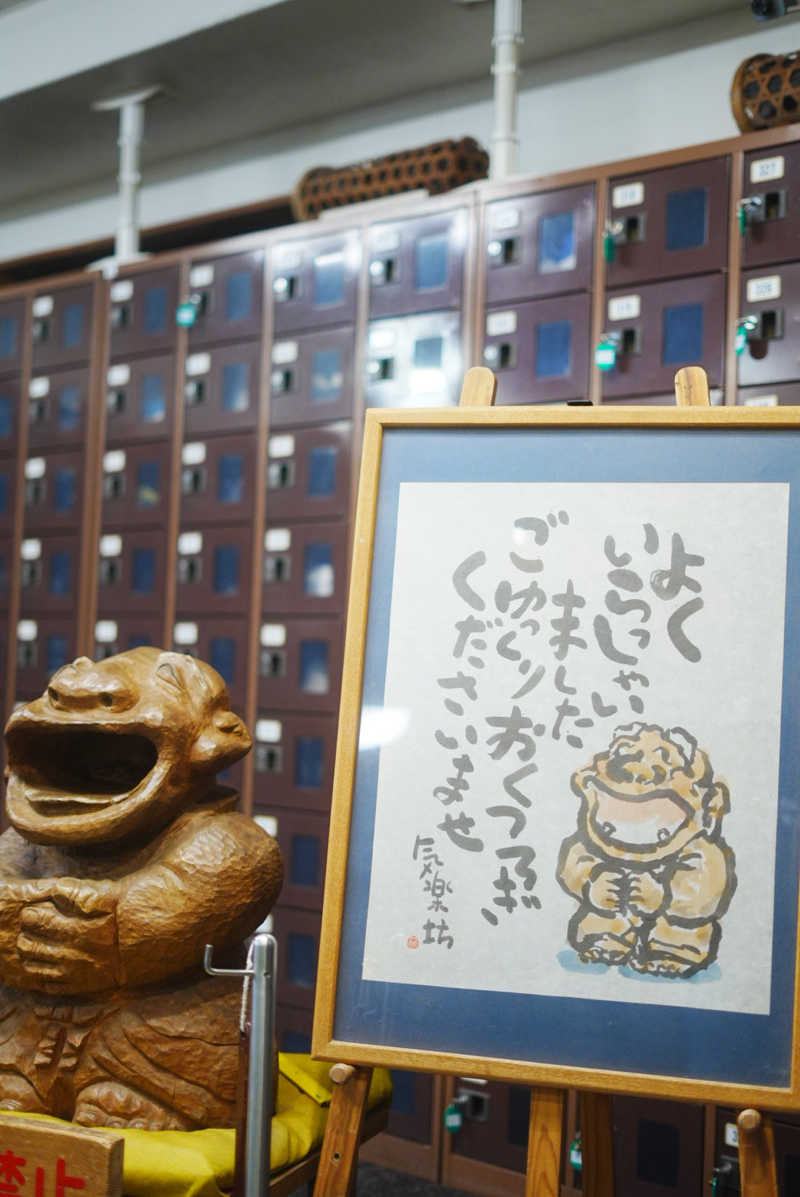 よく
いらっしゃい
ました
ごゆっくりおくつろぎ
くださいませ
気楽坊
禁止
327